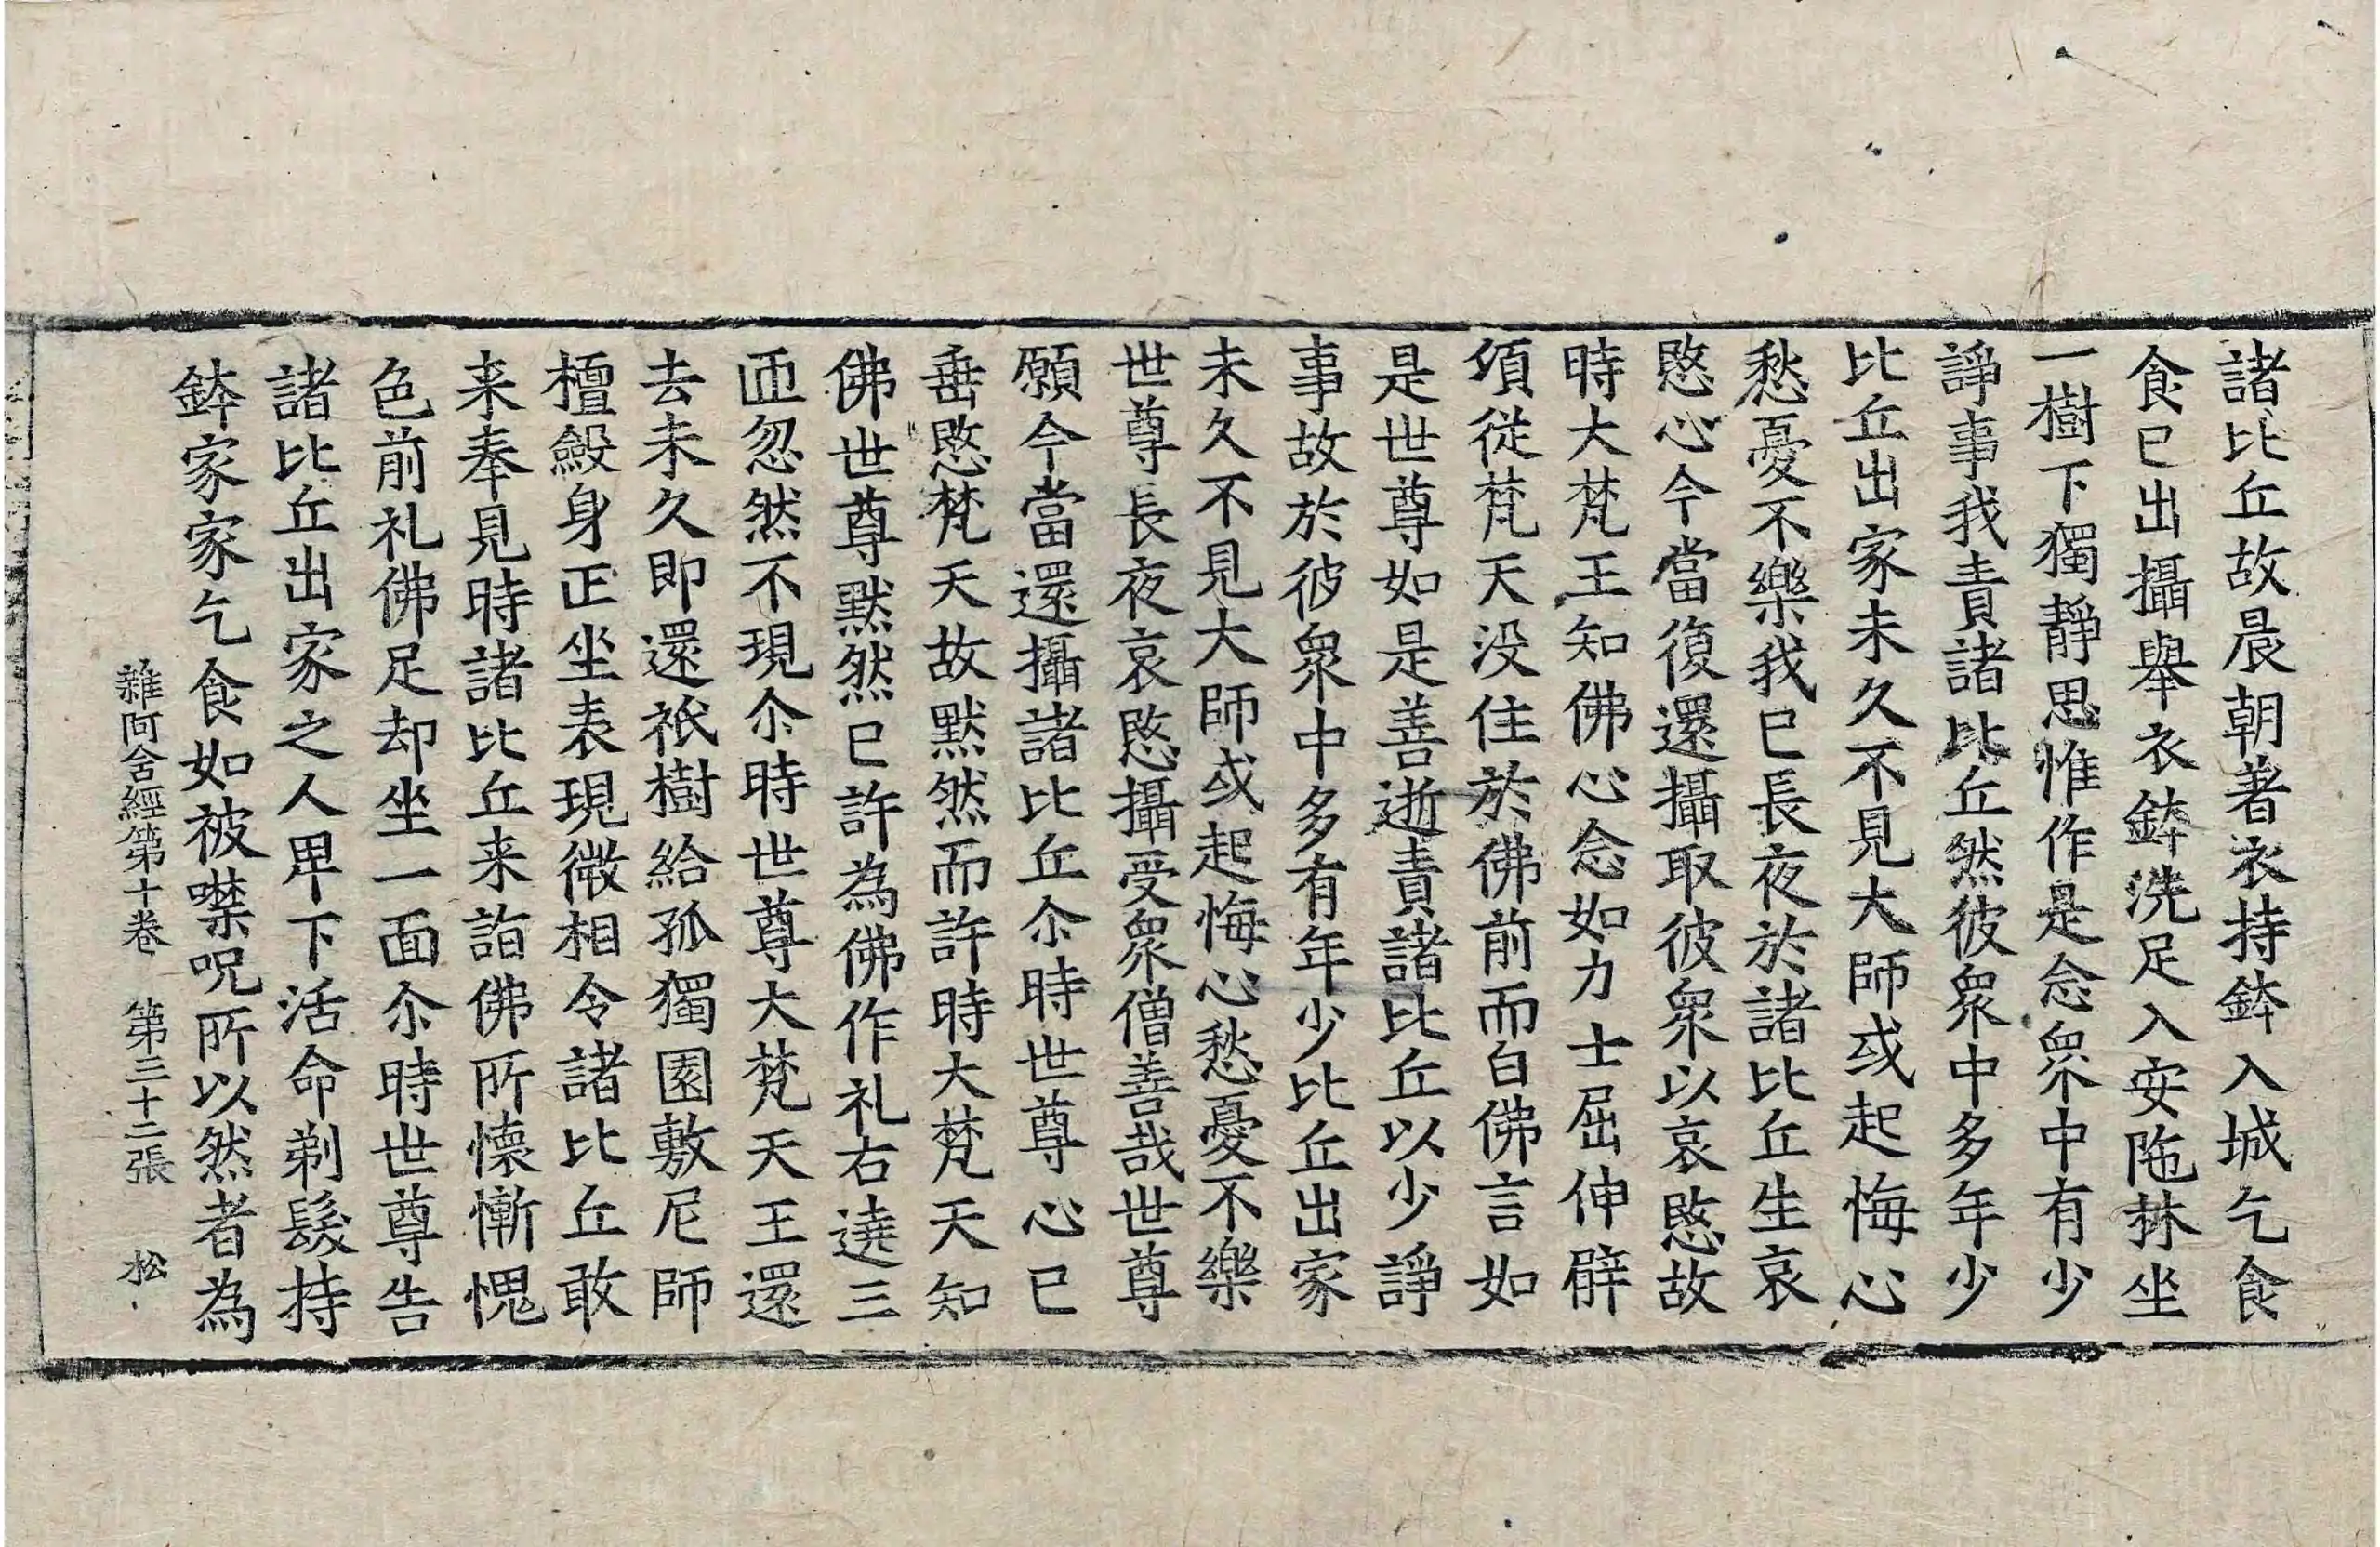 諸比丘故晨朝著衣持鉢入城乞食
食已出攝舉衣鉢洗足入安陁林坐
一樹下獨靜思惟作是念衆中有少
諍事我責諸比丘然彼衆中多年少
比丘出家未久不見大師或起悔心
愁憂不樂我已長夜於諸比丘生哀
愍心今當復還攝取彼衆以哀愍故
時大梵王知佛心念如力士屈伸臂
頃從梵天没住於佛前而白佛言如
是世尊如是善逝責諸比丘以少諍
事故於彼衆中多有年少比丘出家
未久不見大師或起悔心愁憂不樂
世尊長夜哀愍攝受衆僧善哉世尊
願今當還攝諸比丘尒時世尊心已
垂愍梵天故默然而許時大梵天知
佛世尊默然已許為佛作礼右遶三
匝忽然不現尒時世尊大梵天王還
去未久即還祇樹給孤獨園敷尼師
檀斂身正坐表現微相令諸比丘敢
来奉見時諸比丘来詣佛所懐慚愧
色前礼佛足却坐一面尒時世尊告
諸比丘出家之人卑下活命剃髮持
鉢家家乞食如被噤呪所以然者為
雜阿含經第十卷 第三十二張 松